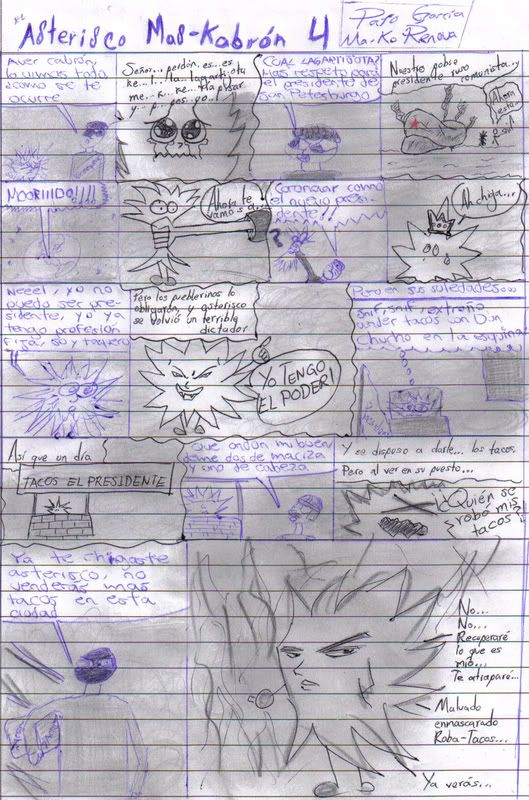 Asterisco Mas-Kabrón 4
Pato García
Ma-Ko Renova
Aver cabrón,
como se te
ocurre
Señor... perdón, es... es
CUAL LAGARTIJOTA?
Mas respeto para
el presidente de
San Petesburgo
Nuestro pobre
presidente ruso
comunista...
Ahora
esta
NOORIIIDO!!!!
Ahora te
vamos a...
Coronaar como
el nuevo presi-
dente!!
Ah chiga...
Neeel, yo no
puedo ser pre-
sidente, yo ya
tengo profesión
fija, soy taquero
Pero los pueblerinos lo
obligarón, y asterisco
se volvió un terrible
dictador
YO TENGO
EL PODER!
Pero en sus soledades...
snif, snif, extraño
vender tacos con Don
Chucho en la esquina
Presidente
Así que un día
TACOS EL PRESIDENTE
Que ondón mi buen
deme dos de maciza
y uno de cabeza
Y se dispuso a darle... los tacos
Pero al ver en su puesto...
¿¡Quién se
robo mis
tacos!?
Ya te chingaste
asterisco, no
venderas mas
tacos en esta
ciudad
No...
No...
Recuperaré
lo que es
mio...
Te atraparé...
Malvado
enmascarado
Roba-Tacos...
Ya verás...